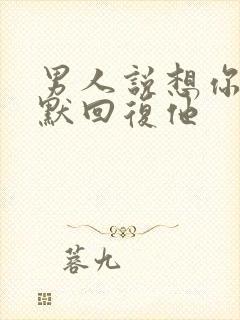 男人說想你
默回復他
菩九